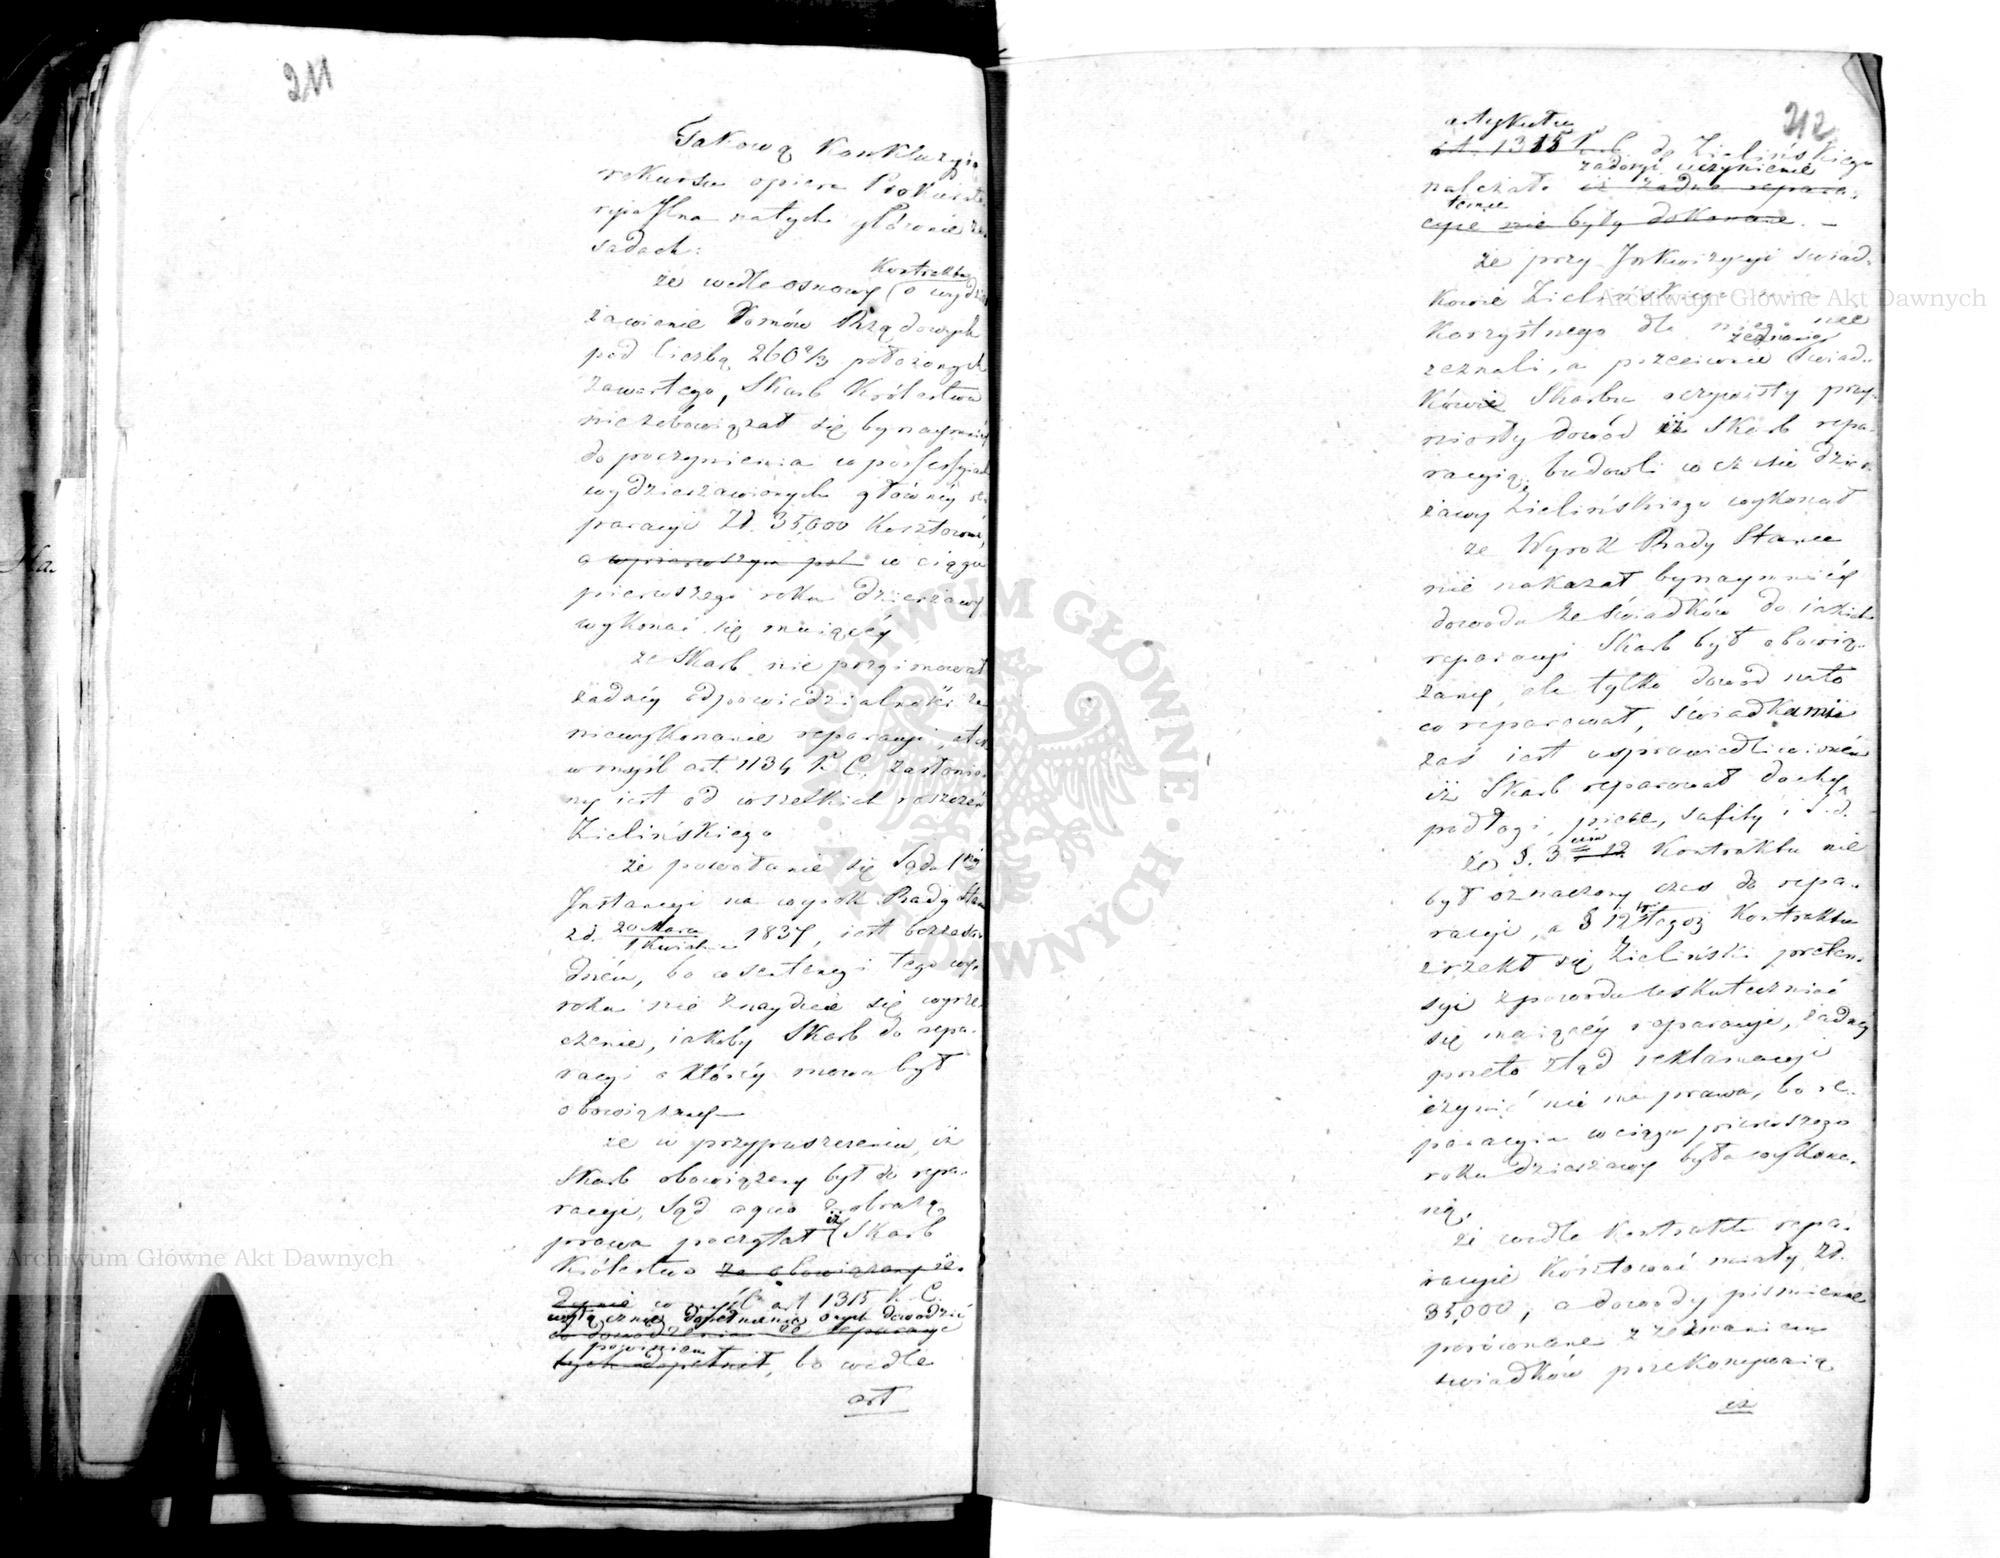 211
Takową Konkluzyią
rekursu opiera Prokura-
na tych głównie za-
sadach:
Kontraktu
że wedle osnowy o wydzier
żawienie Domów Rządowych
pod liczbą 260 2/3 położonych
zawartego, Skarb Królestwa
niezobowiązał się bynaymniéy
do poczynienia w possessyiach
wydzierżawionych głównéy re-
paracyi Zł. 35,000 Kosztować,
a w pierwszym w ciągu
pierwszego roku dzierżawy
wykonać się maiącéy
że Skarb nie przyimował
żadnéy odpowiedzialności za
niewykonanie reparacyi,
w myśl art. 1134 K. C. zasłonio-
ny iest od wszelkich roszczeń
Zielińskiego
że powołanie się Sądu 1éy
Instancyi na wyrok Rady Stanu
z d. 20 Marca
1 Kwietnia 1837, iest bezzasa-
dném, bo w sentencyi tego wy-
roku nie znayduie się wyrze-
czenie, iakoby Skarb do repa-
racyi o któréy mowa był
obowiązany
że w przypuszczeniu, iż
Skarb obowiązany był do repa-
racyi, Sąd a quo z obrazą
iż
prawa poczytał Skarb
Królestwa za obowiązany ie-
dynie w myśl art 1315 K. C.
dopełnienia onych dowodzić
do dowodzenia że reparacye
powinien
tych dopełnił, bo wedle
art
212
artykułu
art. 1315 K. C. do Zielińskiego
uczynienie
należało iż żadne repara-
cye nie były dokonane. –
że przy Inkwizycyi świad-
kowie Zielińskiego
korzystnego dla niego nie
zeznania
zeznali, a przeciwnie świad-
ków Skarbu oczywisty przy-
niosły dowód iż Skarb repa-
racyią budowli w czasie dzier-
żawy Zielińskiego wykonał
że Wyrok Rady Stanu
nie nakazał bynaymniéy
dowodu ze świadków do iakich
reparacyi Skarb był obowią-
zany, ale tylko dowód na to
co reparował, świadkami
zaś iest usprawiedliwioném
iż Skarb reparował dachy,
podłogi, piece, sufity i t. d.
że §. 3 12 Kontraktu nie
był oznaczony czas do repa-
racyi, a § 12 tegoż Kontraktu
zrzekł się Zieliński preten-
syi z powodu uskutecznić
się maiącéy reparacyi, żadnéy
przeto ztąd reklamacyi
czynić nie ma prawa, bo re-
paracyia w ciągu pierwszego
roku dzierżawy była wykona-
ną.
że wedle Kontraktu repa-
racyie Kosztować miały zł.
35,000, a dowody piśmienne
porównane z zeznaniem
świadków przekonywaią
iż
Archiwum Główne Akt Dawnych
Archiwum Główne Akt Dawnych
ARCHIWUM GŁÓWNE · AKT DAWNYCH ·